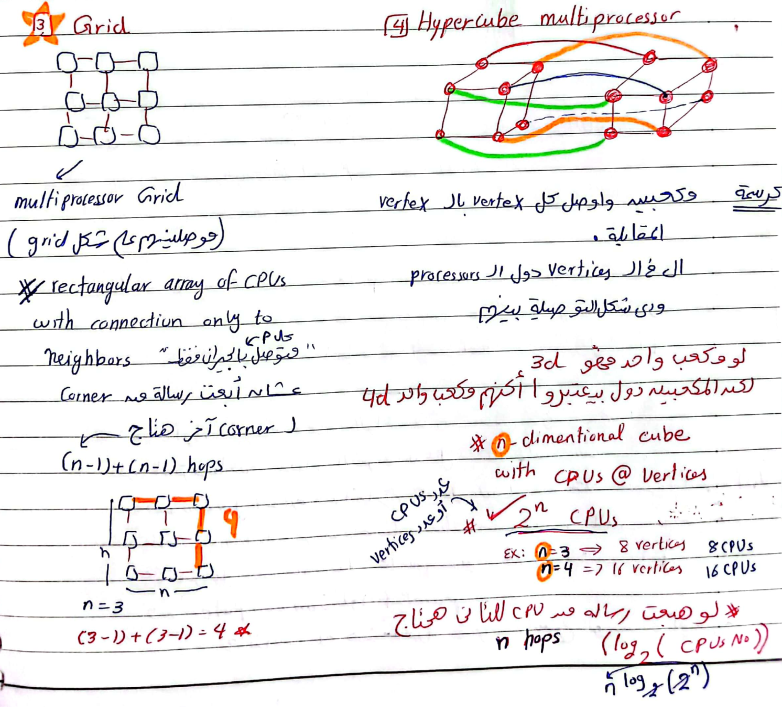 3 Grid
multiprocessor Grid
(موصلينهم على شكل grid)
* rectangular array of CPUs
with connection only to
neighbors "متوصل بالجيران فقط"
CPUs
عشان أبعت رسالة من corner
ل corner آخر هحتاج
(n-1)+(n-1) hops
4
n
n
n=3
(3-1)+(3-1)=4 *
4 Hypercube multiprocessor
مكعبين واوصل كل vertex بال vertex
المقابلة.
ال vertices دول ال processors
ودى شكل التوصيلة بينهم
لو مكعب واحد فهو 3d
لكن المكعبين دول بيعتبروا أكنهم مكعب واحد 4d
* n-dimentional cube
with CPUs @ vertices
عدد CPUs
أو عدد vertices
* 2ⁿ CPUs
Ex: n=3 => 8 vertices 8 CPUs
n=4 => 16 vertices 16 CPUs
* لو هبعت رسالة من CPU للتانى هحتاج
n hops (log₂(CPUs No))
n log₂(2ⁿ)